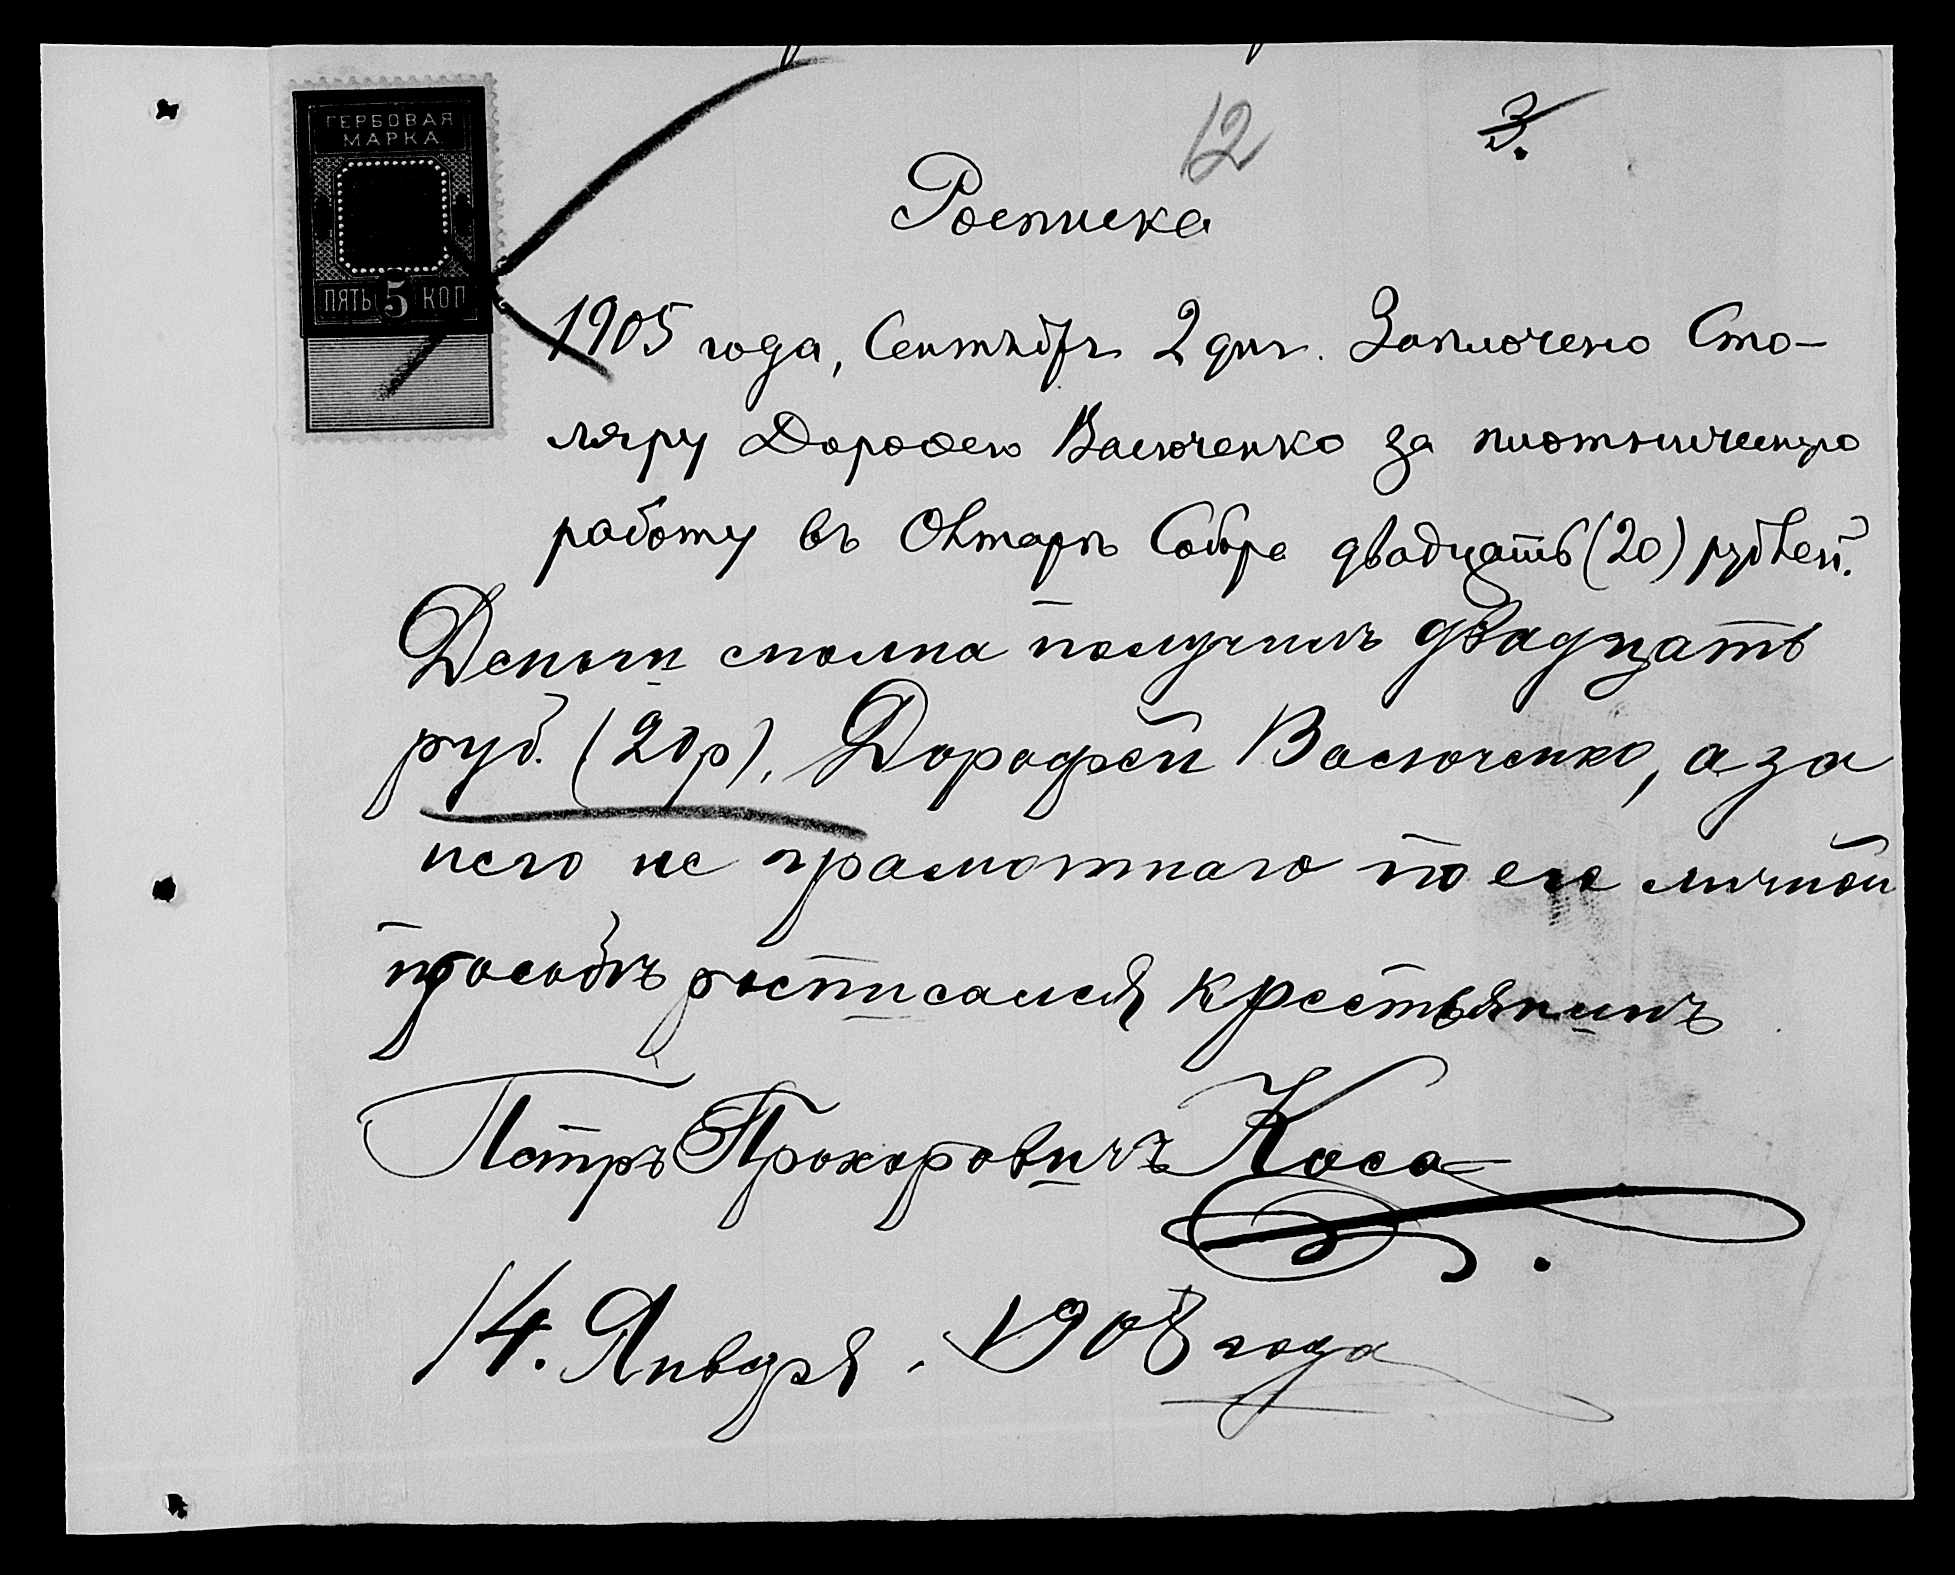 ГЕРБОВАЯ
МАРКА
ПЯТЬ 5 КОП
12
3.
Росписка
1905 года, Сентября 2 дня. Заплочено Сто-
ляру Дорофею Васюченко за плотническую
работу въ Олтарѣ Собора двадцать (20) рублей.
Деньги сполна получилъ двадцать
руб. (20 р), Дорофей Васюченко, а за
него не грамотнаго по его личной
прособѣ росписался крестьянинъ
Петръ Прохоровичъ Коса
14. Января. 1908 года